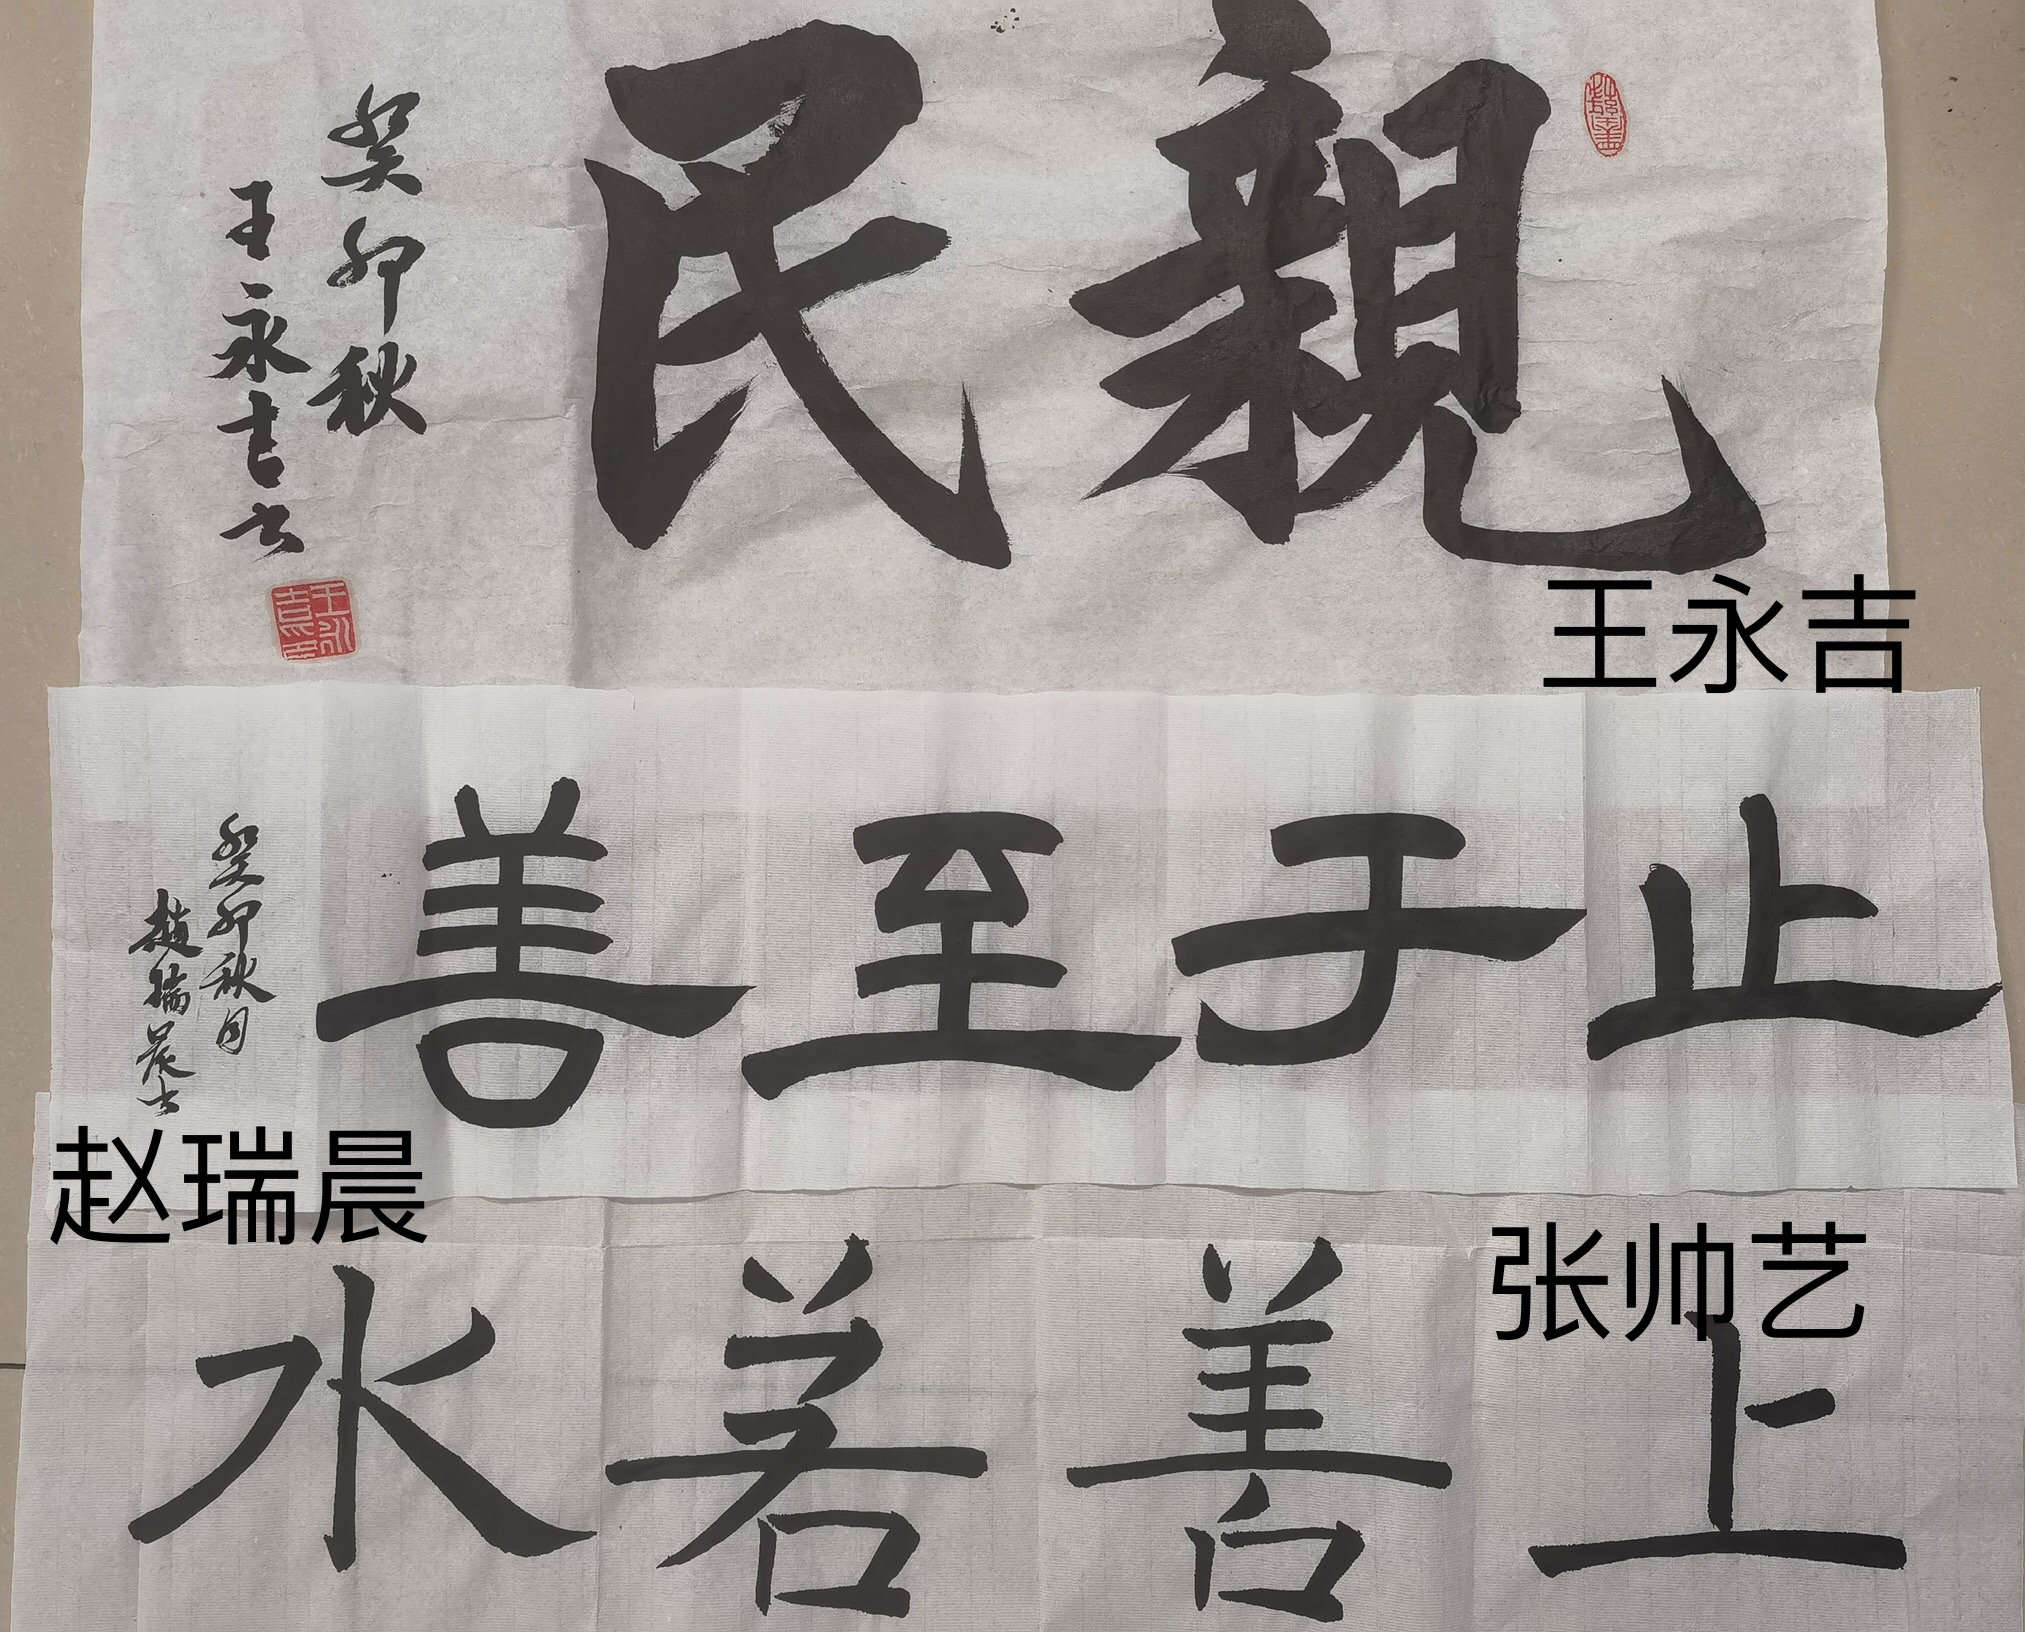 親民
癸卯秋
王永吉书
王永吉印
王永吉
止于至善
癸卯秋月
趙瑞晨书
赵瑞晨
张帅艺
上善若水